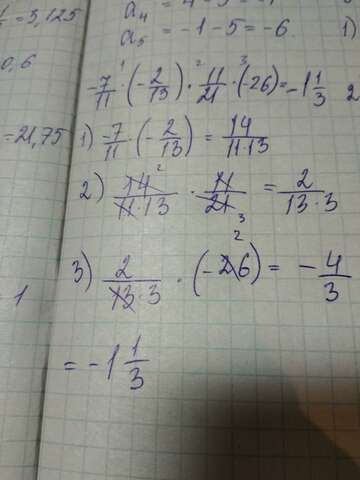 = 3,125
a₄ = 4 - 5 = -1
a₅ = -1 - 5 = -6.
1)
0,6
-7/11 · (-2/13) · 11/21 · (-26) = -1 1/3
2
= 21,75
1) -7/11 · (-2/13) = 14/(11·13)
2) 14/(11·13) · 11/21 = 2/(13·3)
3) 2/(13·3) · (-26) = -4/3
1
= -1 1/3